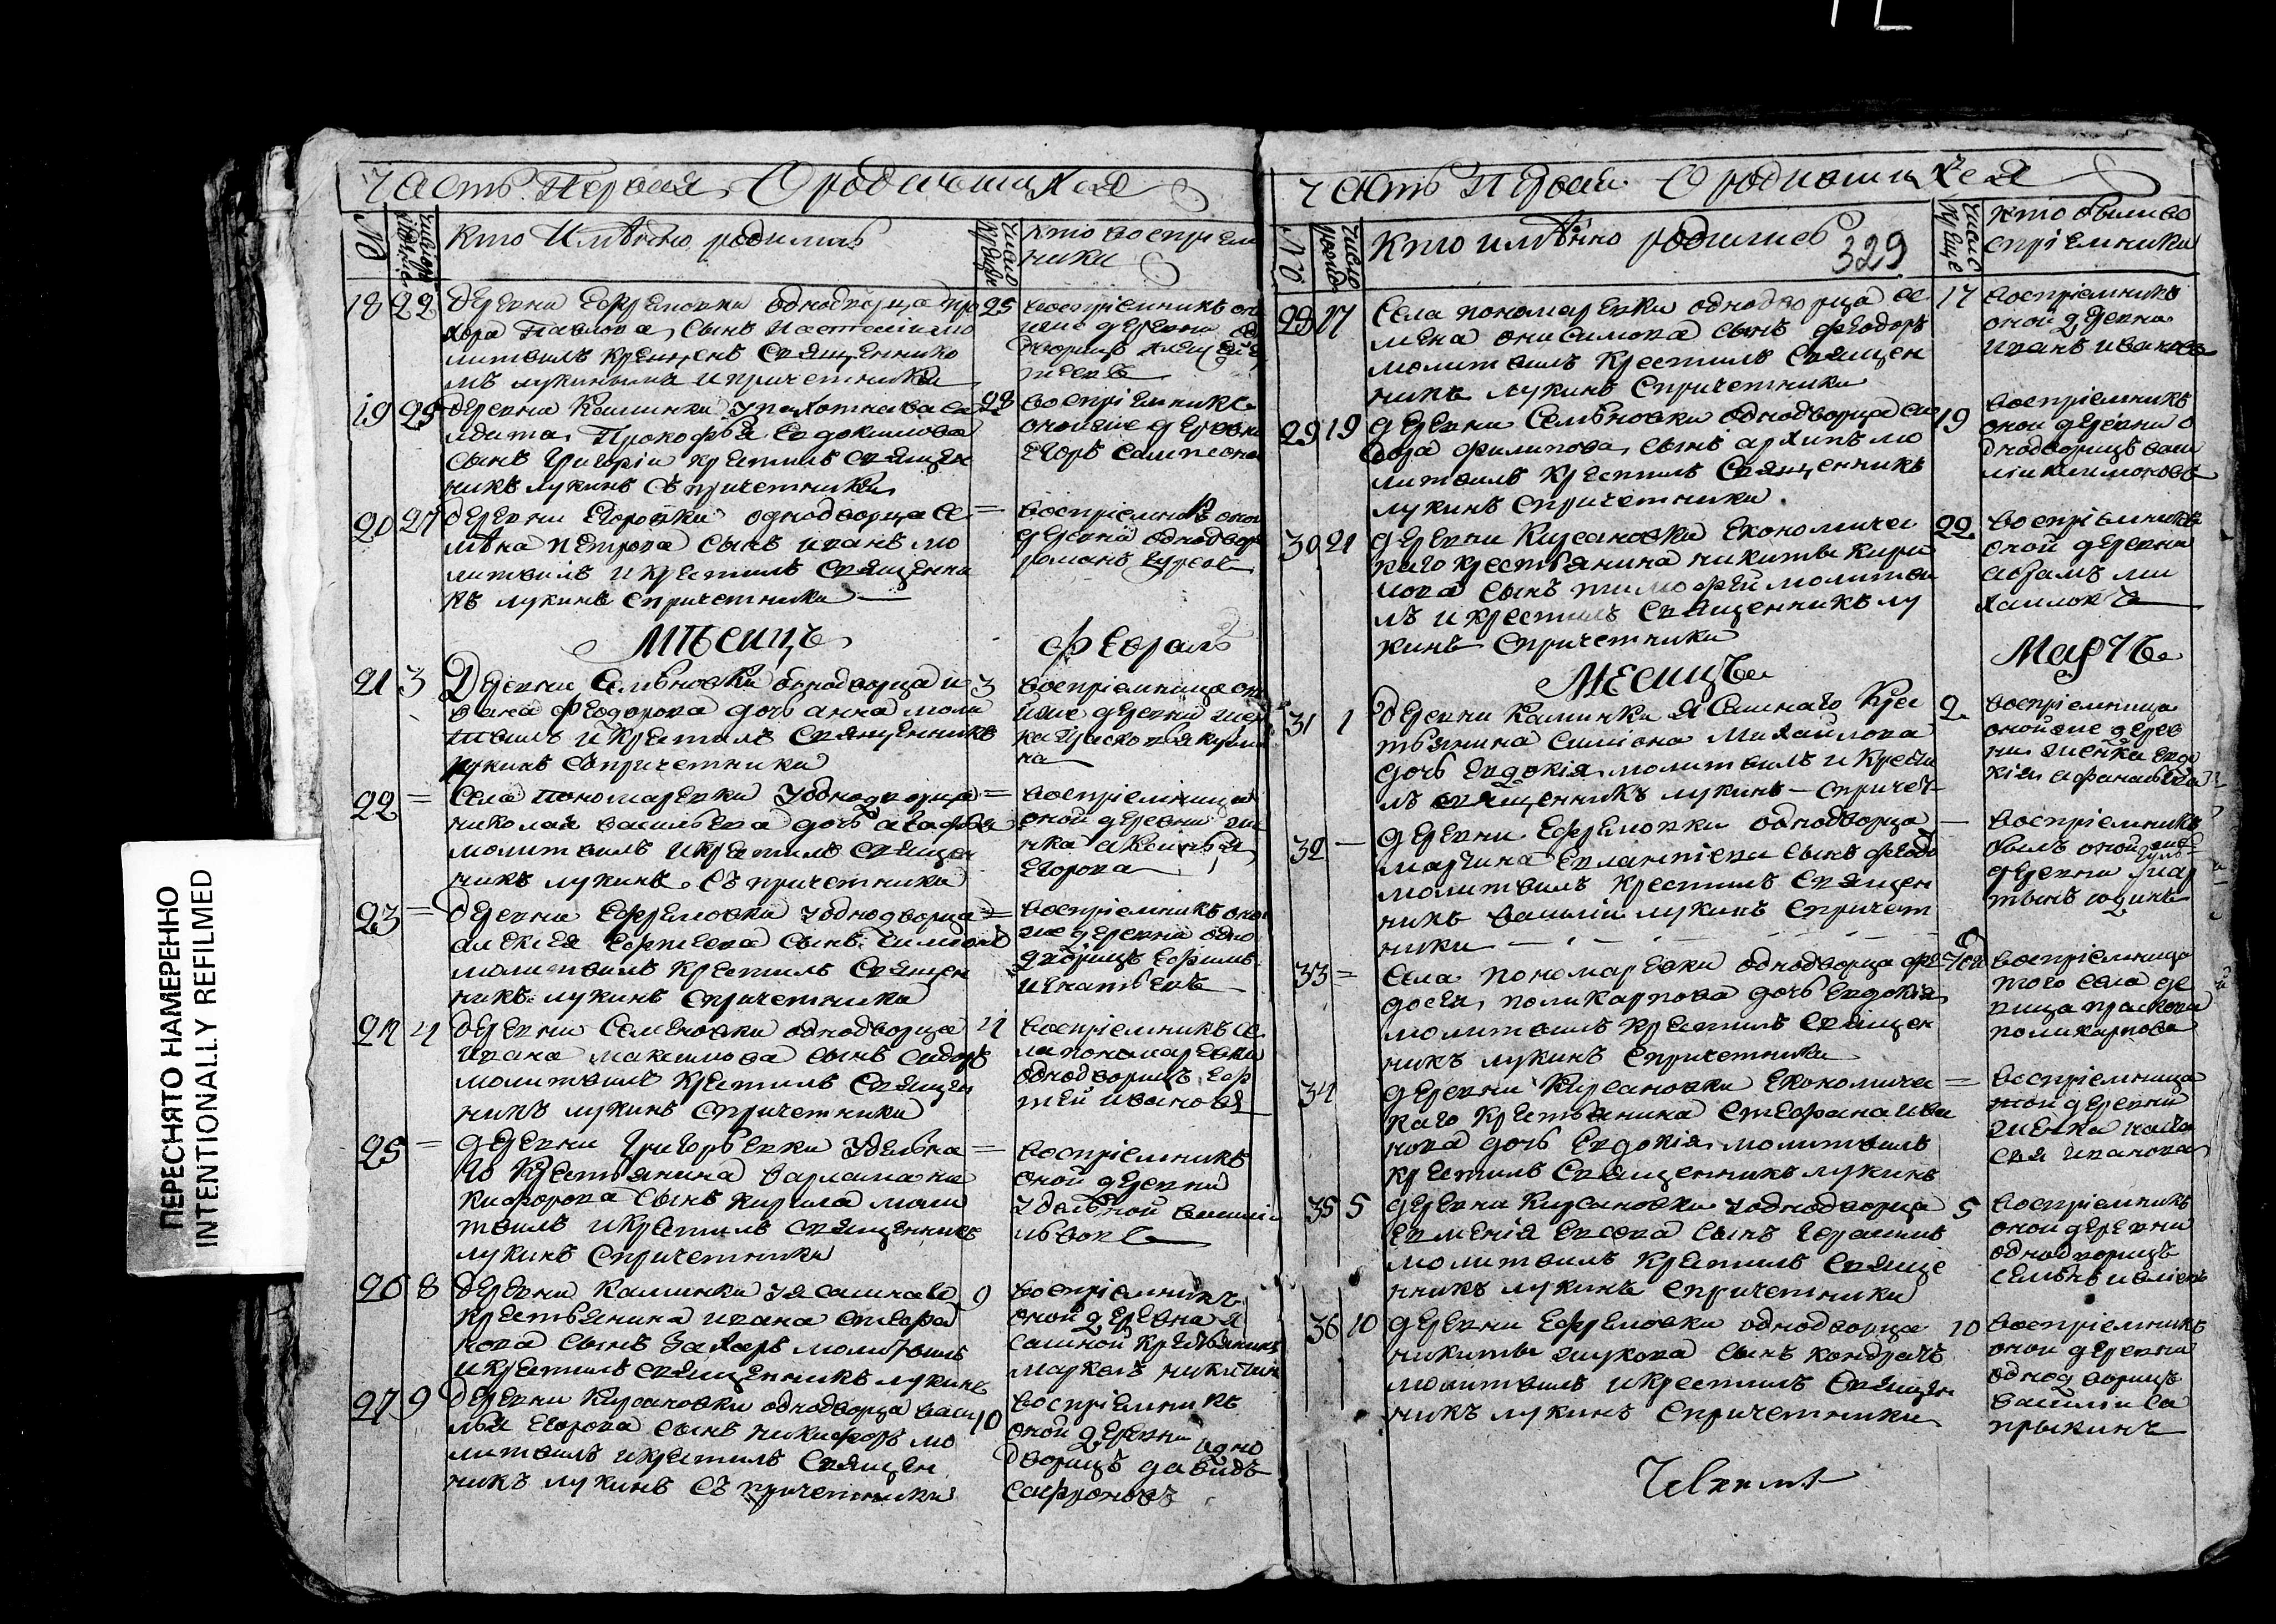 Часть Первая О родившихся
№
Число рожден
Кто Имѣнно родилсъ
Число крещен
кто воспріем
ники
18 22 деревни Ефремовки однодворца про 25
хора Павлова, Сынъ
литвилъ крещенъ Священнико
мъ лукинымъ и причетники
воспріемникъ он
деревни од
дворецъ
19 25 деревни Калинки
Прокофья Евдокимова
Сынъ Григоріи крестилъ священ
никъ лукинъ съ причетники
28 воспріемникъ
оной же деревни
Егоръ Самсоно
20 27 деревни Егоровки однодворца се
мѣна петрова Сынъ иванъ мо
литвилъ и крестилъ Священни
къ лукинъ спричетники
= воспріемникъ оной
деревни однодвор
романъ
Мѣсицъ Февраль
21 3 Деревни Семѣновки однодворца и
вана феодорова дочь анна моли
твилъ и крестилъ Священникъ
лукинъ сопричетники
3 воспріемница он
же деревни жен
ка
на
22 = Села пономаревки однодворца =
николая васильева дочь агафья
молитвилъ и крестилъ священ
никъ лукинъ. Съ причетники
воспріемница
оной деревни же
нка аксинья
Егорова
23 = деревни Ефремовки однодворца =
алексея Сынъ
молитвилъ крестилъ Священ
никъ лукинъ спричетники
воспріемникъ оно
же деревни одно
дворецъ Ефимъ
игнатьевъ
24 4 деревни Семеновки однодворца 4
ивана максимова сынъ Сидоръ
молитвилъ крестилъ Священ
никъ лукинъ спричетники
воспріемникъ се
ла пономаревки
однодворецъ
ивановъ
25 = деревни Григорьевки удельна =
го крестьянина варлама ни
кифорова сынъ кирила моли
твилъ и крестилъ священникъ
лукинъ спричетники
воспріемникъ
оной деревни
удельной васили
26 8 деревни Калинки
крестьянина ивана Стефа
нова сынъ Захаръ молитвилъ
и крестилъ священникъ лукинъ
9 воспріемникъ
оной деревни я
сашной крестьянинъ
маркелъ никитинъ
27 9 деревни Кирсановки однодворца васи
лья Егорова Сынъ никифоръ мо
литвилъ и крестилъ Священ
никъ лукинъ Съ причетники
10 воспріемникъ
оной деревни одно
дворецъ давидъ
Сафроновъ
Часть Первая О родившихся
№
Число рожде
Кто имѣнно родились 329
Число креще
кто были во
спріемники
28 17 Села пономаревки однодворца се
мена онисимова сынъ феодоръ
молитвилъ крестилъ Священ
никъ лукинъ Спричетники
17 воспріемникъ
оной деревни
иванъ ивановъ
29 19 деревни Семѣновки однодворца си
дора филипова, сынъ архипъ мо
литвилъ крестилъ Священникъ
лукинъ спричетники.
19 воспріемникъ
оной деревни о
днодворецъ васи
ліи климоновъ
30 21 деревни Кирсановки Економичес
каго крестьянина никиты кири
лова сынъ тимофей молитви
лъ и крестилъ Священникъ лу
кинъ спричетники
22 воспріемникъ
оной деревни
абрамъ ми
хаиловъ
Месицъ Мартъ
31 1 деревни Калинки Ясашнаго Крес
тьянина симіона Михайлова
дочь Евдокія молитвилъ и Крести
лъ священникъ лукинъ – спричет
2 воспріемница
оной же дерев
ни женка Евдо
кія афанасьева
32 — деревни Ефремовки однодворца —
мартина Евлантіева сынъ феодо
молитвилъ Крестилъ Священ
никъ василіи лукинъ спричет
ники
воспріемникъ
былъ оной же
деревни мар
тынъ юдинъ
33 = села пономаревки однодворца фе
досея, поликарпова дочь Евдокія
молитвилъ крестилъ священ
никъ лукинъ спричетники
воспріемница
того села де
вица праскова
поликарпова
34 деревни Кирсановки Економичес
каго крестьянина Стефана ива
нова дочь Евдокія молитвилъ
крестилъ Священникъ лукинъ
= воспріемница
той деревни
женка наста
сея иванова
35 5 деревни Кирсановки однодворца
Евсева сынъ Герасимъ
молитвилъ крестилъ Свяще
нникъ лукинъ спричетники
5 воспріемникъ
оной деревни
однодворецъ
семѣнъ
36 10 деревни Ефремовки однодворца
никиты жукова сынъ кондратъ
молитвилъ и крестилъ Священ
никъ лукинъ спричетники
10 воспріемникъ
оной деревни
однодворецъ
василіи са
прыкинъ
ПЕРЕСНЯТО НАМЕРЕННО
INTENTIONALLY REFILMED